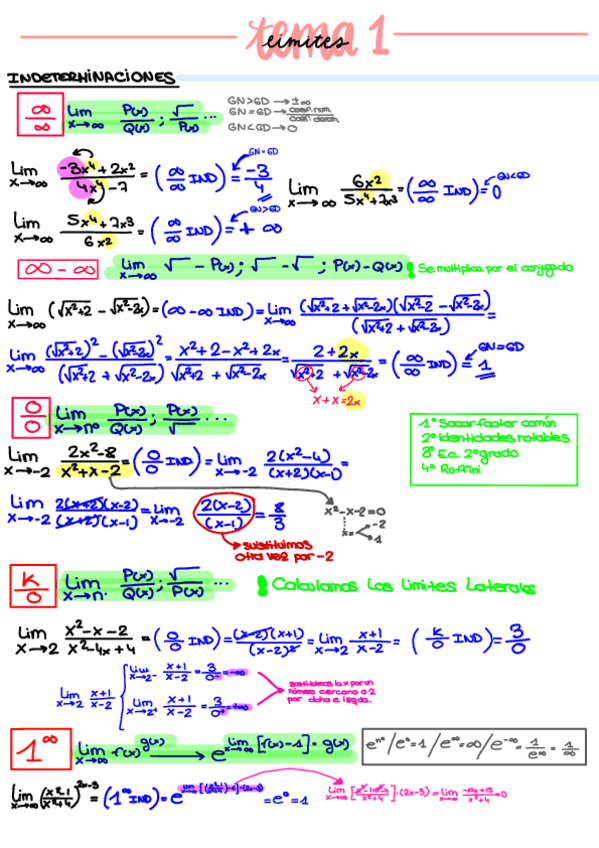 tema 1
límites
INDETERMINACIONES
∞/∞ Lim x→∞ P(x)/Q(x) ; √/P(x) ...
GN>GD → ±∞
GN=GD → coef.num./coef.denom.
GN<GD → 0
Lim x→∞ (-3x⁴+2x²)/(4x⁴-7) = (∞/∞ IND) = -3/4
GN=GD
Lim x→∞ 6x²/(5x⁴+7x³) = (∞/∞ IND) = 0
GN<GD
Lim x→∞ (5x⁴+7x³)/(6x²) = (∞/∞ IND) = +∞
GN>GD
∞-∞ Lim x→∞ √ - P(x) ; √ - √ ; P(x) - Q(x) ! Se multiplica por el conjugado
Lim x→∞ (√(x²+2) - √(x²-2x)) = (∞-∞ IND) = Lim x→∞ (√(x²+2) + √(x²-2x))(√(x²+2) - √(x²-2x))/(√(x²+2) + √(x²-2x)) =
Lim x→∞ ((√(x²+2))² - (√(x²-2x))²)/(√(x²+2) + √(x²-2x)) = (x²+2-x²+2x)/(√(x²+2) + √(x²-2x)) = (2+2x)/(√(x²+2) + √(x²-2x)) = (∞/∞ IND) = 1
GN=GD
x+x=2x
0/0 Lim x→nº P(x)/Q(x) ; P(x)/√ ...
1º Sacar factor común
2º Identidades notables
3º Ec. 2º grado
4º Ruffini
Lim x→-2 (2x²-8)/(x²+x-2) = (0/0 IND) = Lim x→-2 2(x²-4)/((x+2)(x-1)) =
Lim x→-2 2(x+2)(x-2)/((x+2)(x-1)) = Lim x→-2 2(x-2)/(x-1) = 8/3
x²-x-2=0
x= -2
1
sustituimos
otra vez por -2
K/0 Lim x→n· P(x)/Q(x) ; √/P(x) ... ! Calculamos Los límites Laterales
Lim x→2 (x²-x-2)/(x²-4x+4) = (0/0 IND) = (x-2)(x+1)/(x-2)² = Lim x→2 (x+1)/(x-2) = (K/0 IND) = 3/0
Lim x→2 (x+1)/(x-2)
Lim x→2⁻ (x+1)/(x-2) = 3/0⁻ = -∞
Lim x→2⁺ (x+1)/(x-2) = 3/0⁺ = +∞
sustituimos la x por un
número cercano a 2
por dcha e izqda.
1^∞ Lim x→∞ f(x)^g(x) → e^(Lim x→∞ [f(x)-1]·g(x))
e^nº / e⁰=1 / e^∞=∞ / e^-∞ = 1/e^∞ = 1/∞
Lim x→∞ ((x²-1)/(x²+4))^(2x-3) = (1^∞ IND) = e^(Lim x→∞ [((x²-1)/(x²+4))-1]·(2x-3)) = e⁰ = 1